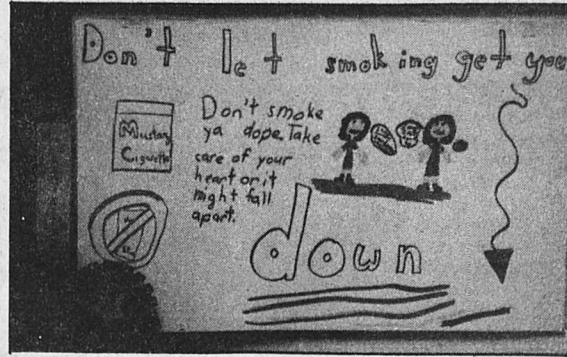 Don't let smoking get you
Mustang
Cigarette
Don't smoke
ya dope. Take
care of your
heart or it
might fall
apart.
down